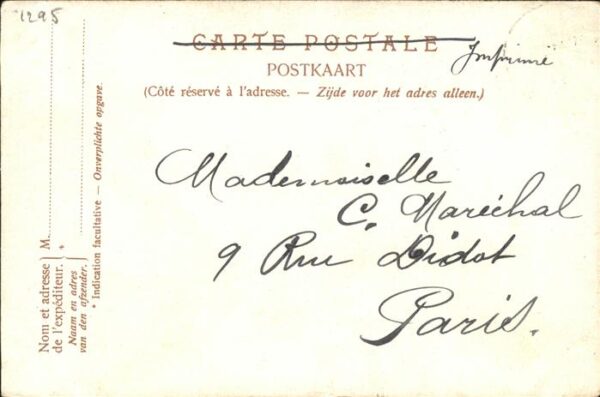 1295
CARTE POSTALE
Imprimé
POSTKAART
(Côté réservé à l'adresse. — Zijde voor het adres alleen.)
Mademoiselle
C. Maréchal
9 Rue Didot
Paris.
Nom et adresse
de l'expéditeur.
M.
Naam en adres
van den afzender.
*
* Indication facultative — Onverplichte opgave.